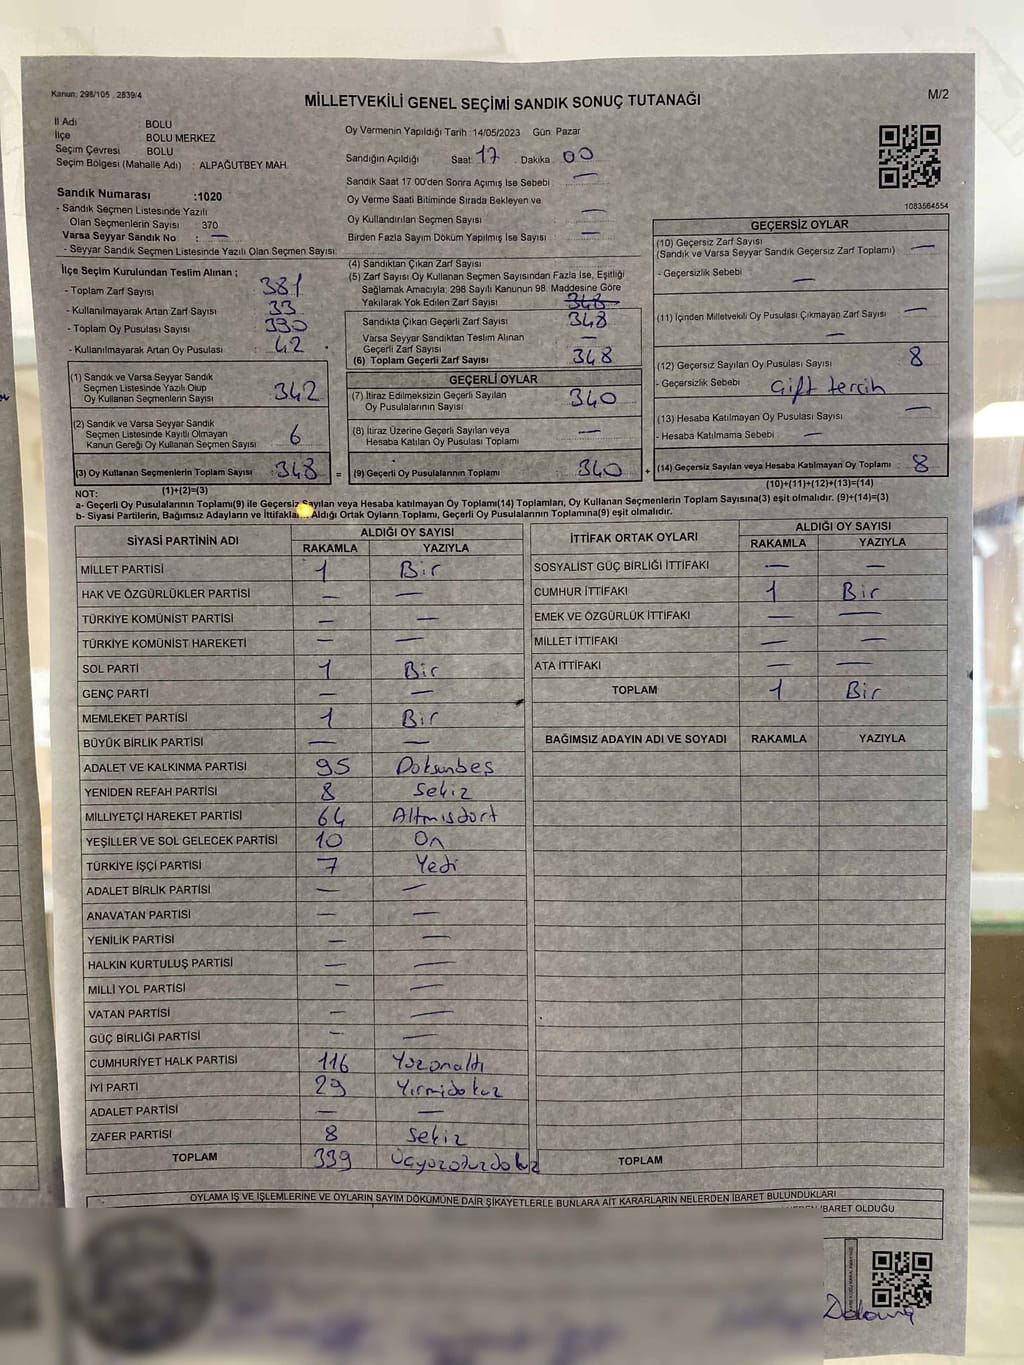 Kanun: 298/105 , 2839/4
MİLLETVEKİLİ GENEL SEÇİMİ SANDIK SONUÇ TUTANAĞI
M/2
İl Adı : BOLU
İlçe : BOLU MERKEZ
Seçim Çevresi : BOLU
Seçim Bölgesi (Mahalle Adı) : ALPAĞUTBEY MAH.
Sandık Numarası :1020
- Sandık Seçmen Listesinde Yazılı
Olan Seçmenlerin Sayısı 370
Varsa Seyyar Sandık No : —
- Seyyar Sandık Seçmen Listesinde Yazılı Olan Seçmen Sayısı:
Oy Vermenin Yapıldığı Tarih :14/05/2023 Gün: Pazar
Sandığın Açıldığı Saat: 17 Dakika: 00
Sandık Saat 17.00'den Sonra Açılmış İse Sebebi —
Oy Verme Saati Bitiminde Sırada Bekleyen ve
Oy Kullandırılan Seçmen Sayısı —
Birden Fazla Sayım Döküm Yapılmış İse Sayısı —
1083564554
İlçe Seçim Kurulundan Teslim Alınan ;
- Toplam Zarf Sayısı 381
- Kullanılmayarak Artan Zarf Sayısı 33
- Toplam Oy Pusulası Sayısı 390
- Kullanılmayarak Artan Oy Pusulası 42
(1) Sandık ve Varsa Seyyar Sandık
Seçmen Listesinde Yazılı Olup
Oy Kullanan Seçmenlerin Sayısı 342
(2) Sandık ve Varsa Seyyar Sandık
Seçmen Listesinde Kayıtlı Olmayan
Kanun Gereği Oy Kullanan Seçmen Sayısı 6
(3) Oy Kullanan Seçmenlerin Toplam Sayısı 348 =
(1)+(2)=(3)
(4) Sandıktan Çıkan Zarf Sayısı
(5) Zarf Sayısı Oy Kullanan Seçmen Sayısından Fazla İse, Eşitliği
Sağlamak Amacıyla; 298 Sayılı Kanunun 98. Maddesine Göre
Yakılarak Yok Edilen Zarf Sayısı 348
Sandıkta Çıkan Geçerli Zarf Sayısı 348
Varsa Seyyar Sandıktan Teslim Alınan
Geçerli Zarf Sayısı —
(6) Toplam Geçerli Zarf Sayısı 348
GEÇERLİ OYLAR
(7) İtiraz Edilmeksizin Geçerli Sayılan
Oy Pusulalarının Sayısı 340
(8) İtiraz Üzerine Geçerli Sayılan veya
Hesaba Katılan Oy Pusulası Toplamı —
(9) Geçerli Oy Pusulalarının Toplamı 340 +
GEÇERSİZ OYLAR
(10) Geçersiz Zarf Sayısı
(Sandık ve Varsa Seyyar Sandık Geçersiz Zarf Toplamı) —
- Geçersizlik Sebebi —
(11) İçinden Milletvekili Oy Pusulası Çıkmayan Zarf Sayısı —
—
(12) Geçersiz Sayılan Oy Pusulası Sayısı 8
- Geçersizlik Sebebi Çift tercih
(13) Hesaba Katılmayan Oy Pusulası Sayısı —
- Hesaba Katılmama Sebebi —
(14) Geçersiz Sayılan veya Hesaba Katılmayan Oy Toplamı 8
(10)+(11)+(12)+(13)=(14)
NOT:
a- Geçerli Oy Pusulalarının Toplamı(9) ile Geçersiz Sayılan veya Hesaba katılmayan Oy Toplamı(14) Toplamları, Oy Kullanan Seçmenlerin Toplam Sayısına(3) eşit olmalıdır. (9)+(14)=(3)
b- Siyasi Partilerin, Bağımsız Adayların ve İttifakların Aldığı Ortak Oyların Toplamı, Geçerli Oy Pusulalarının Toplamına(9) eşit olmalıdır.
SİYASİ PARTİNİN ADI ALDIĞI OY SAYISI
RAKAMLA YAZIYLA
MİLLET PARTİSİ 1 Bir
HAK VE ÖZGÜRLÜKLER PARTİSİ — —
TÜRKİYE KOMÜNİST PARTİSİ — —
TÜRKİYE KOMÜNİST HAREKETİ — —
SOL PARTİ 1 Bir
GENÇ PARTİ — —
MEMLEKET PARTİSİ 1 Bir
BÜYÜK BİRLİK PARTİSİ — —
ADALET VE KALKINMA PARTİSİ 95 Doksanbeş
YENİDEN REFAH PARTİSİ 8 Sekiz
MİLLİYETÇİ HAREKET PARTİSİ 64 Altmışdört
YEŞİLLER VE SOL GELECEK PARTİSİ 10 On
TÜRKİYE İŞÇİ PARTİSİ 7 Yedi
ADALET BİRLİK PARTİSİ — —
ANAVATAN PARTİSİ — —
YENİLİK PARTİSİ — —
HALKIN KURTULUŞ PARTİSİ — —
MİLLİ YOL PARTİSİ — —
VATAN PARTİSİ — —
GÜÇ BİRLİĞİ PARTİSİ — —
CUMHURİYET HALK PARTİSİ 116 Yüzonaltı
İYİ PARTİ 29 Yirmidokuz
ADALET PARTİSİ — —
ZAFER PARTİSİ 8 Sekiz
TOPLAM 339 Üçyüzotuzdokuz
İTTİFAK ORTAK OYLARI ALDIĞI OY SAYISI
RAKAMLA YAZIYLA
SOSYALİST GÜÇ BİRLİĞİ İTTİFAKI — —
CUMHUR İTTİFAKI 1 Bir
EMEK VE ÖZGÜRLÜK İTTİFAKI — —
MİLLET İTTİFAKI — —
ATA İTTİFAKI — —
TOPLAM 1 Bir
BAĞIMSIZ ADAYIN ADI VE SOYADI RAKAMLA YAZIYLA
TOPLAM
OYLAMA İŞ VE İŞLEMLERİNE VE OYLARIN SAYIM DÖKÜMÜNE DAİR ŞİKAYETLERLE BUNLARA AİT KARARLARIN NELERDEN İBARET BULUNDUKLARI
İBARET OLDUĞU